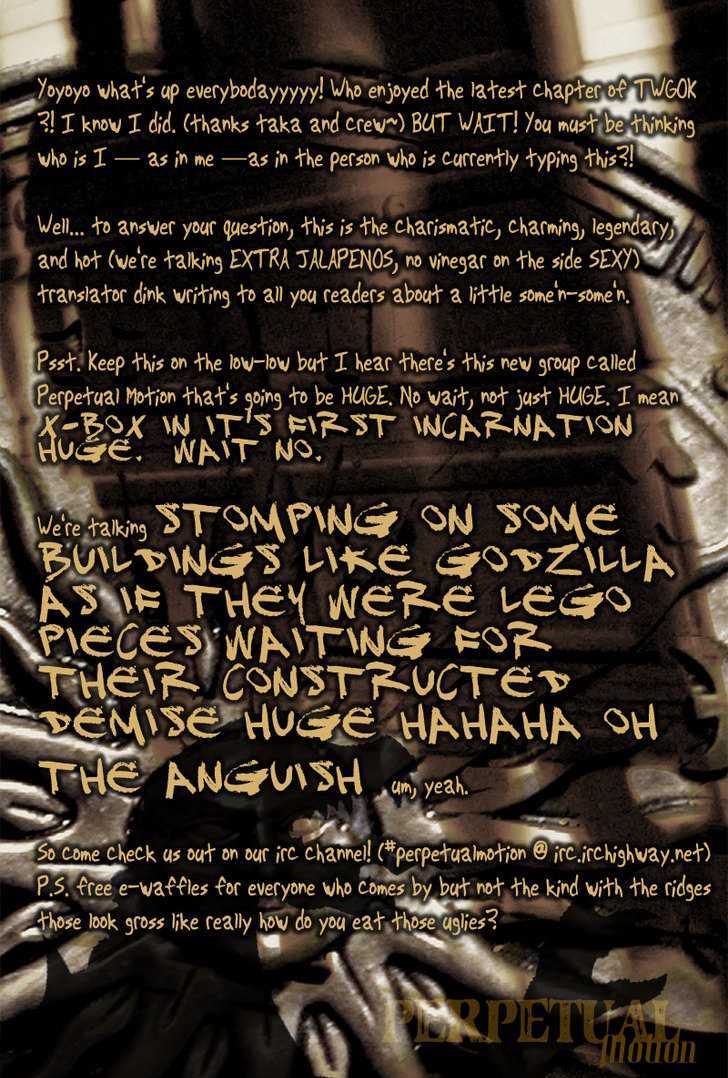 Yoyoyo what's up everybodayyyyy! Who enjoyed the latest chapter of TWGOK
?! I know I did. (thanks taka and crew~) BUT WAIT! You must be thinking
who is I — as in me —as in the person who is currently typing this?!
Well... to answer your question, this is the charismatic, charming, legendary,
and hot (we're talking EXTRA JALAPENOS, no vinegar on the side SEXY)
translator dink writing to all you readers about a little some'n-some'n.
Psst. Keep this on the low-low but I hear there's this new group called
Perpetual Motion that's going to be HUGE. No wait, not just HUGE. I mean
X-BOX IN IT'S FIRST INCARNATION
HUGE. WAIT NO.
We're talking STOMPING ON SOME
BUILDINGS LIKE GODZILLA
AS IF THEY WERE LEGO
PIECES WAITING FOR
THEIR CONSTRUCTED
DEMISE HUGE HAHAHA OH
THE ANGUISH um, yeah.
So come check us out on our irc channel! (#perpetualmotion @ irc.irchighway.net)
P.S. free e-waffles for everyone who comes by but not the kind with the ridges
those look gross like really how do you eat those uglies?
PERPETUAL
Motion